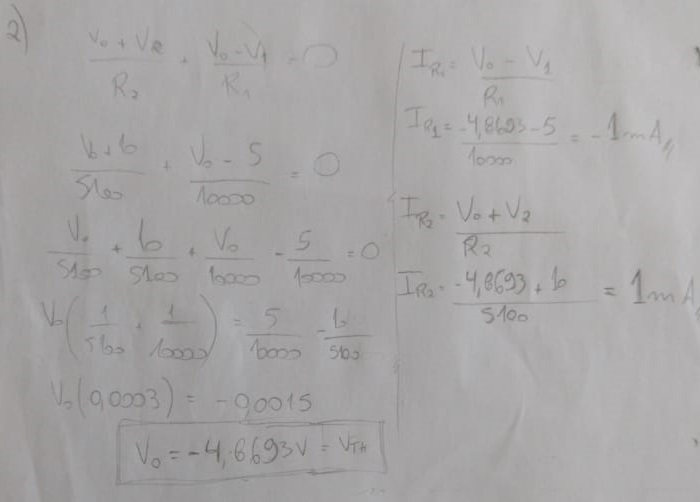 2)
(V₀ + V₂)/R₂ + (V₀ - V₁)/R₁ = 0
(V₀ + 10)/5100 + (V₀ - 5)/10000 = 0
V₀/5100 + 10/5100 + V₀/10000 - 5/10000 = 0
V₀(1/5100 + 1/10000) = 5/10000 - 10/5100
V₀(0,0003) = -0,0015
V₀ = -4,8693V = VTH
IR₁ = (V₀ - V₁)/R₁
IR₁ = (-4,8693 - 5)/10000 = -1mA//
IR₂ = (V₀ + V₂)/R₂
IR₂ = (-4,8693 + 10)/5100 = 1mA